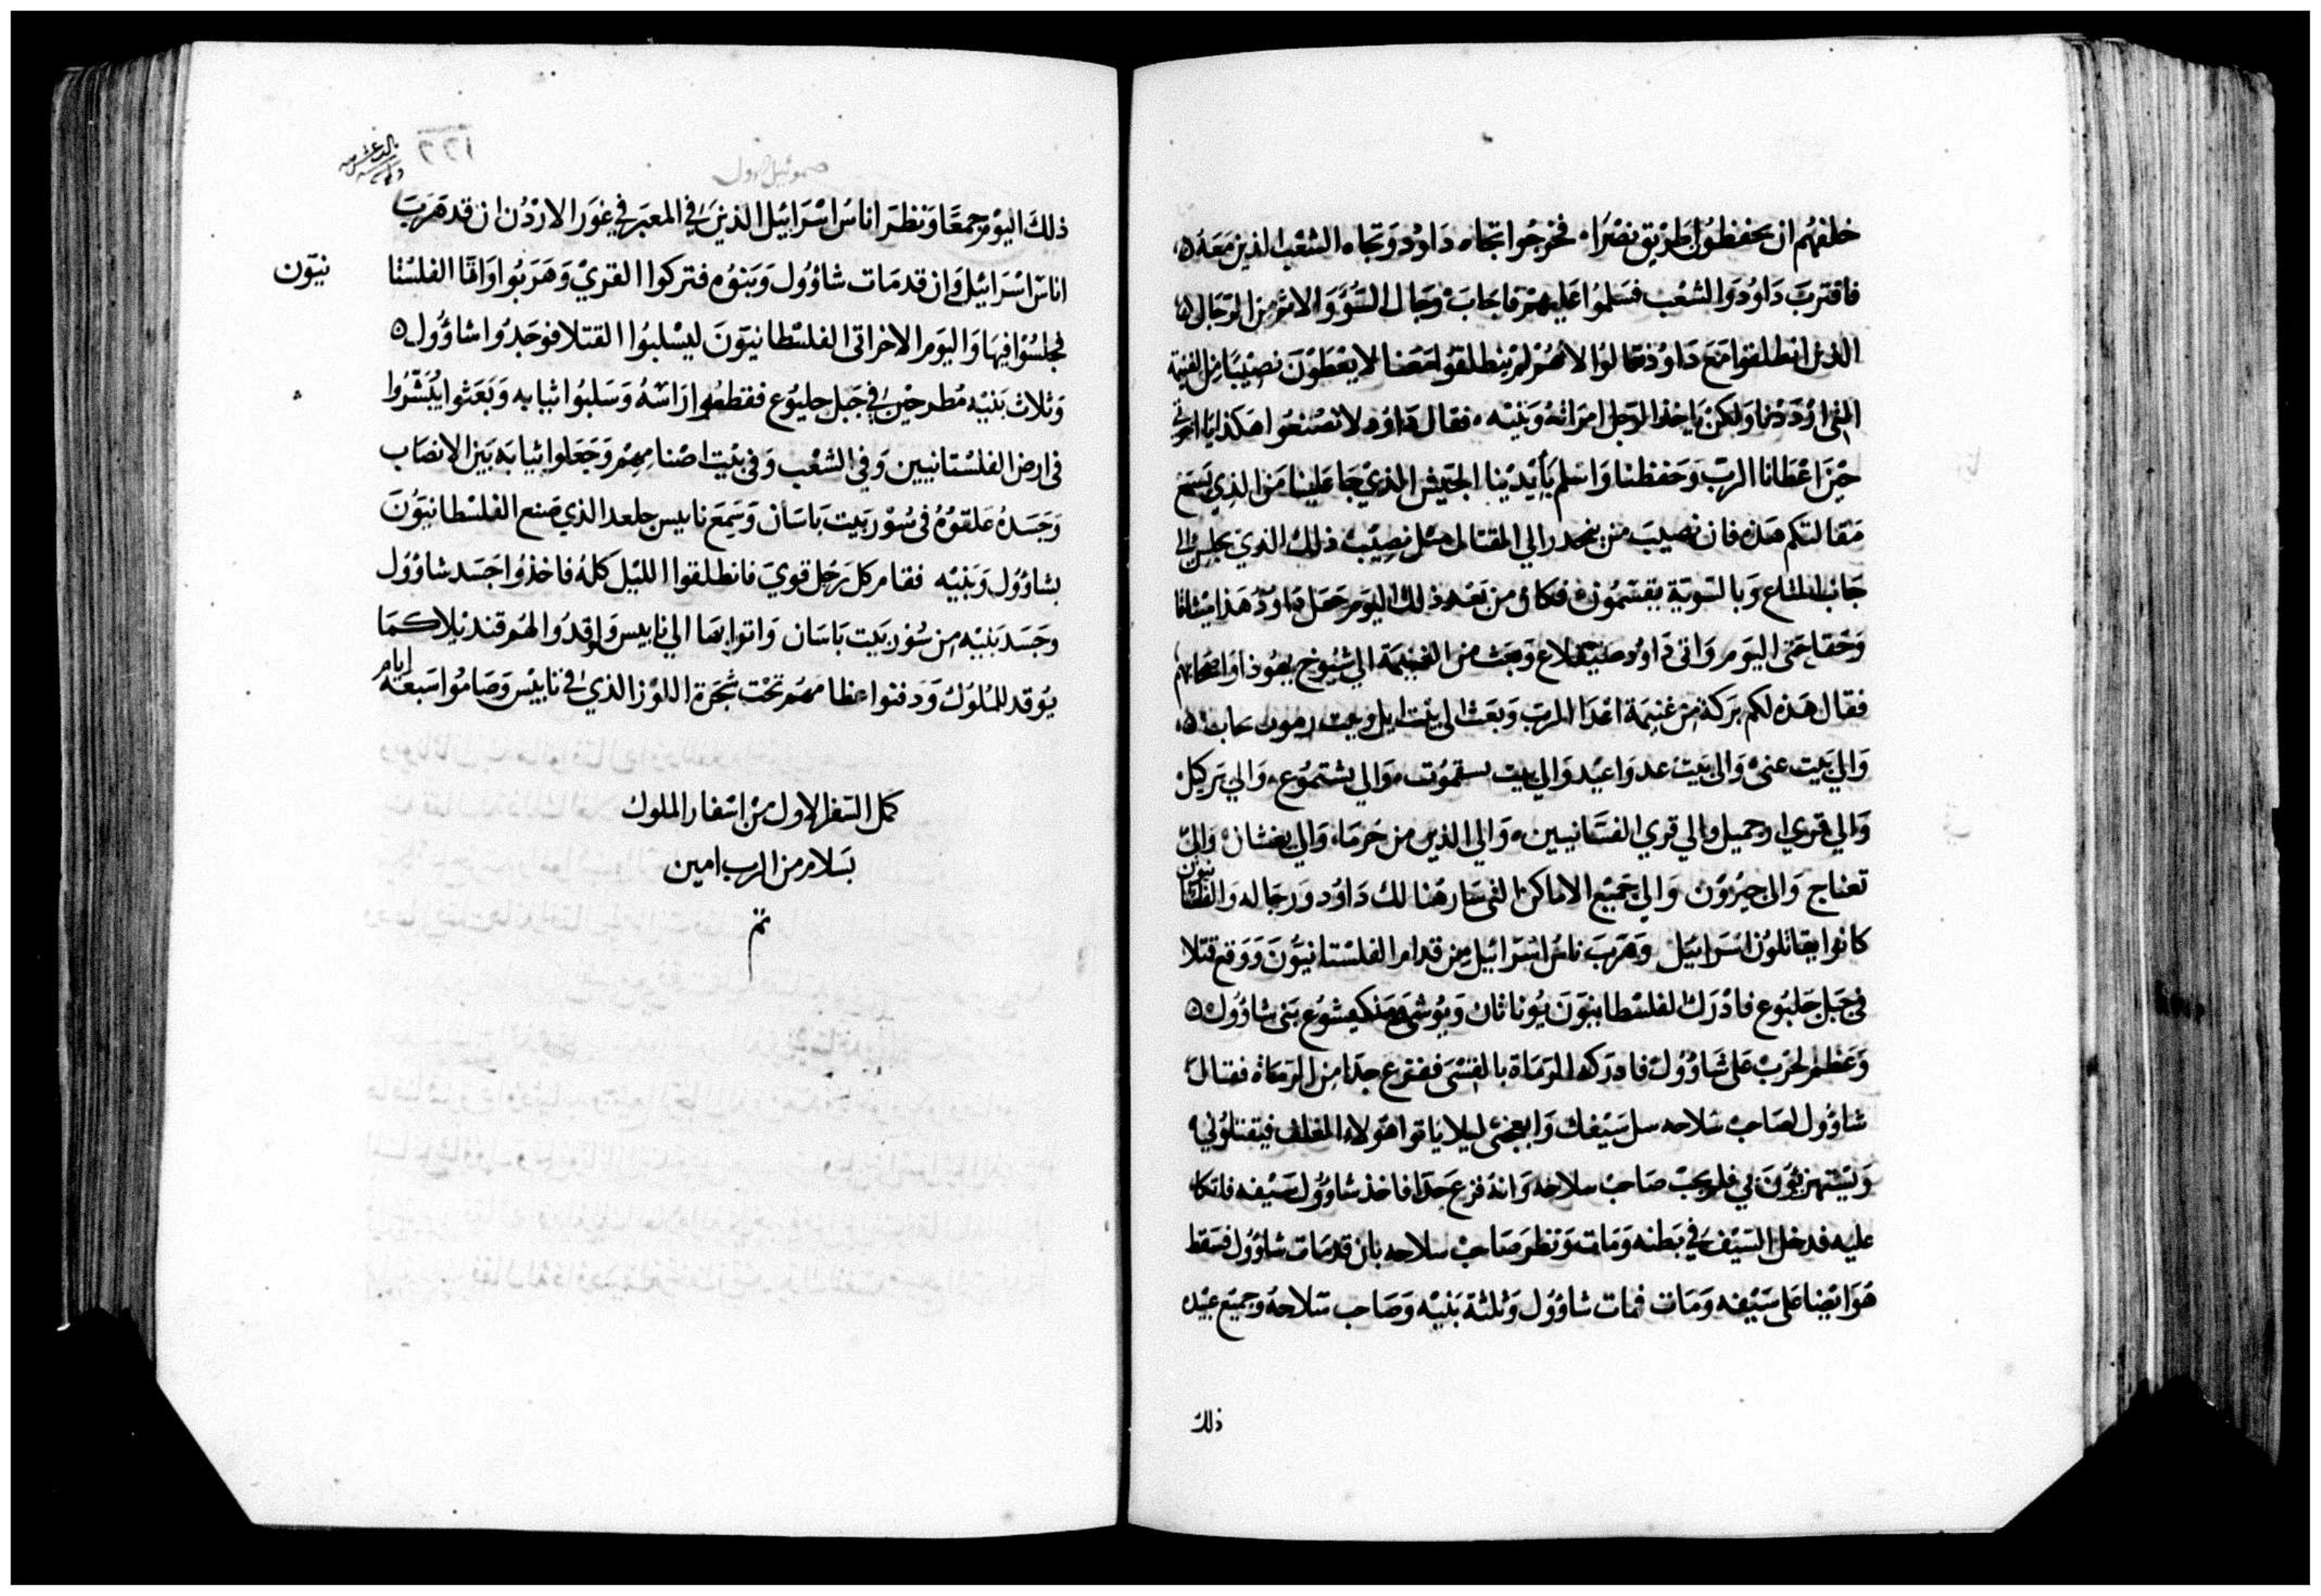 خلفهم ان يحفظوا طريق نصرا، فخرجوا تجاه داوُد وتجاه الشعب الذين معه
فاقتربَ داوُد والشعب فسلموا عليهم فاجابَ رجال السُّوّ والاثم من الرجال
الذين انطلقوا مع داوُد قالوا لانهم لم ينطلقوا معنا لا يعطون نصيبًا من الغنيمة
التى ولكن ياخذ الرجل امراته وبنيه، فقال داوُد لا تصنعوا هكذا يا اخوتي
حين اعطانا الرب وحفظنا واسلم بأيدينا الجيش الذي جا علينا من الذي يسمع
مقالتكم هذه فان نصيب من ينحدر الي القتال مثل نصيب ذلك الذي يجلس الى
جانب المتاع وبالسوية يقتسمون فكان من بعد ذلك اليوم جعل داوُد هذا ميثاقا
وحقا حتى اليوم واتى داوُد صيقلاع وبعث من الغنيمة الي شيوخ يهوذا واصحابهم
فقال هذه لكم بركة من غنيمة اعدا الرب وبعث الى بيت ايل وبيت رموت
والي بيت عنى والى بيت عدواعيد والي بيت سقموت، والي يشتموع، والي يركيل
والي قري ارحميل والي قري الفسانيين، والي الذين من حرما، والي والى
تعناج والى حبرون والي جميع الاماكن التى سار هنالك داوُد ورجاله والفلسطانيون
كانوا يقاتلون اسرائيل وهرب ناس اسرائيل من قدام الفلستانيون ووقع قتلا
في جبل جلبوع فادرك الفلسطانيون يوناثان ويوشي وملكيشوع بنى شاوُول
وعظم الحرب على شاوُول فادركه الرماة بالقسى ففزع جدًا من الرماة فقال
شاوُول لصاحب سلاحه سل سيفك وابعجنى ليلا ياتوا هولاء الغلف فيقتلوني
ويستهزئون بي فلم يحب صاحب سلاحه وانه فزع جدًا فاخذ شاوُول سيفه فاتكا
عليه فدخل السيف في بطنه ومات ونظر صاحب سلاحه بان قد مات شاوُول فسقط
هو ايضا على سيفه ومات فمات شاوُول وثلثة بنيه وصاحب سلاحه وجميع عبيده
ذلك
صموئيل الاول
١٢٦
ذلك اليوم جمعًا ونظر اناس اسرائيل الذين في المعبر في غور الاردن ان قد هرب
اناس اسرائيل وان قد مات شاوُول وبنوه فتركوا القري وهربوا واتا الفلستا
نيون
فجلسوا فيها واليوم الاخر اتى الفلسطانيون ليسلبوا القتلا فوجدوا شاوُول
وثلاث بنيه مطرحين في جبل جلبوع فقطعوا راسه وسلبوا ثيابه وبعثوا يبشروا
فى ارض الفلستانيين وفي الشعب وفى بيت اصنامهم وجعلوا ثيابه بين الانصاب
وجسده علقوه فى سور بيت باسان وسمع نابيس جلعد الذي صنع الفلسطانيون
بشاوُول وبنيه فقام كل رجل قوي فانطلقوا الليل كله فاخذوا جسد شاوُول
وجسد بنيه من سور بيت باسان واتوا بها الي نابيس واوقدوا لهم قنديلا كما
يوقد للملوك ودفنوا عظامهم تحت شجرة اللوز الذي في نابيس وصاموا سبعة ايام
كمل السفر الاول من اسفار الملوك
بسلام من الرب امين
تم